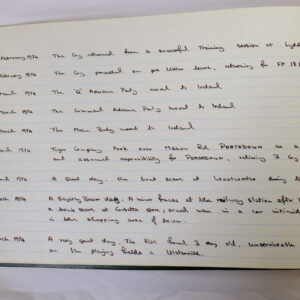 February 1974 The Coy returned from a successful Training Session at Lydd
February 1974 The Coy proceeded on pre leave, returning for
March 1974 The 'Q' Advance Party moved to Ireland
March 1974 The Command Advance Party moved to Ireland
March 1974 The Main Body moved to Ireland
March 1974 Tiger Company took over Mahon Rd, PORTADOWN
and assumed responsibility for PORTADOWN, relieving B Coy
March 1974 A quiet day. One bomb scare at Woolworths during
March 1974 A Slightly Busier day. A minor fracas at the railway station after
a bomb scare at Corbetts store; armed men in a car
in the shopping area of town.
March 1974 A very quiet day. The RUC found 3 very old, unserviceable
on the playing fields in